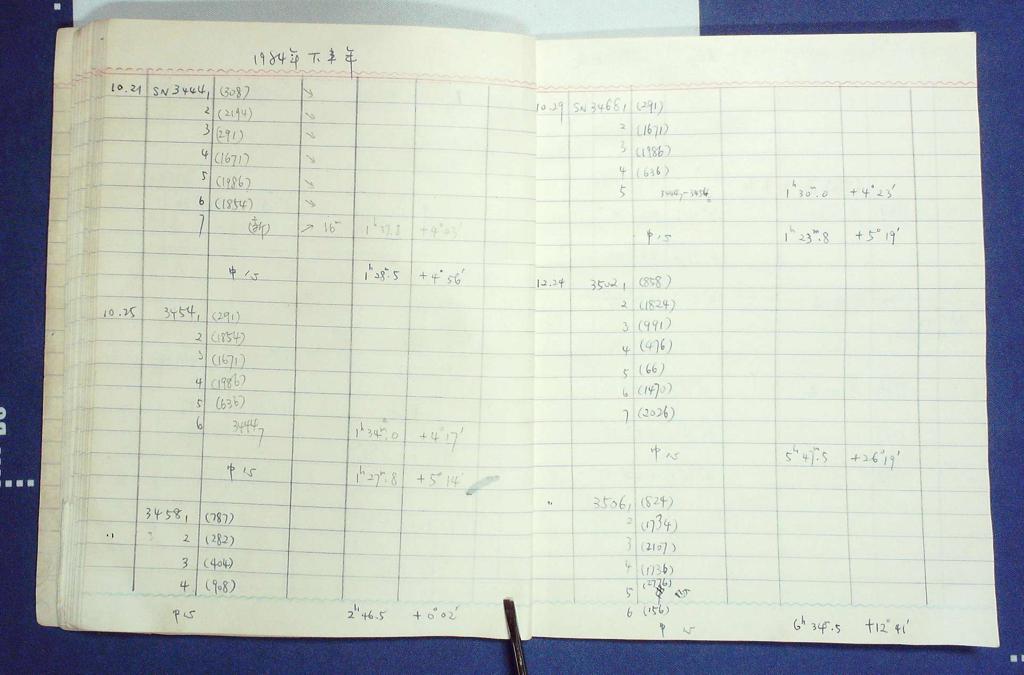 1984年下半年
10.21 SN 3444₁ (308) ↘
2 (2194) ↘
3 (291) ↘
4 (1671) ↘
5 (1986) ↘
6 (1854) ↘
7 (新) → 16ᵐ 1ʰ 37.8 +4°03′
中心 1ʰ 28ᵐ.5 +4°56′
10.25 3454₁ (291)
2 (1854)
3 (1671)
4 (1986)
5 (636)
6 3444₇ 1ʰ 34ᵐ.0 +4°17′
中心 1ʰ 27ᵐ.8 +5°14′
3458₁ (787)
‥ 2 (282)
3 (404)
4 (908)
中心 2ʰ 46.5 +0°02′
10.29 SN 3468₁ (291)
2 (1671)
3 (1986)
4 (636)
5 3444₇-3454₆ 1ʰ 30ᵐ.0 +4°23′
中心 1ʰ 23ᵐ.8 +5°19′
12.24 3502₁ (858)
2 (1824)
3 (991)
4 (476)
5 (66)
6 (1470)
7 (2026)
中心 5ʰ 47ᵐ.5 +26°19′
‥ 3506₁ (824)
2 (1734)
3 (2107)
4 (1736)
5 (2776)
6 (156)
中心 6ʰ 34ᵐ.5 +12°41′